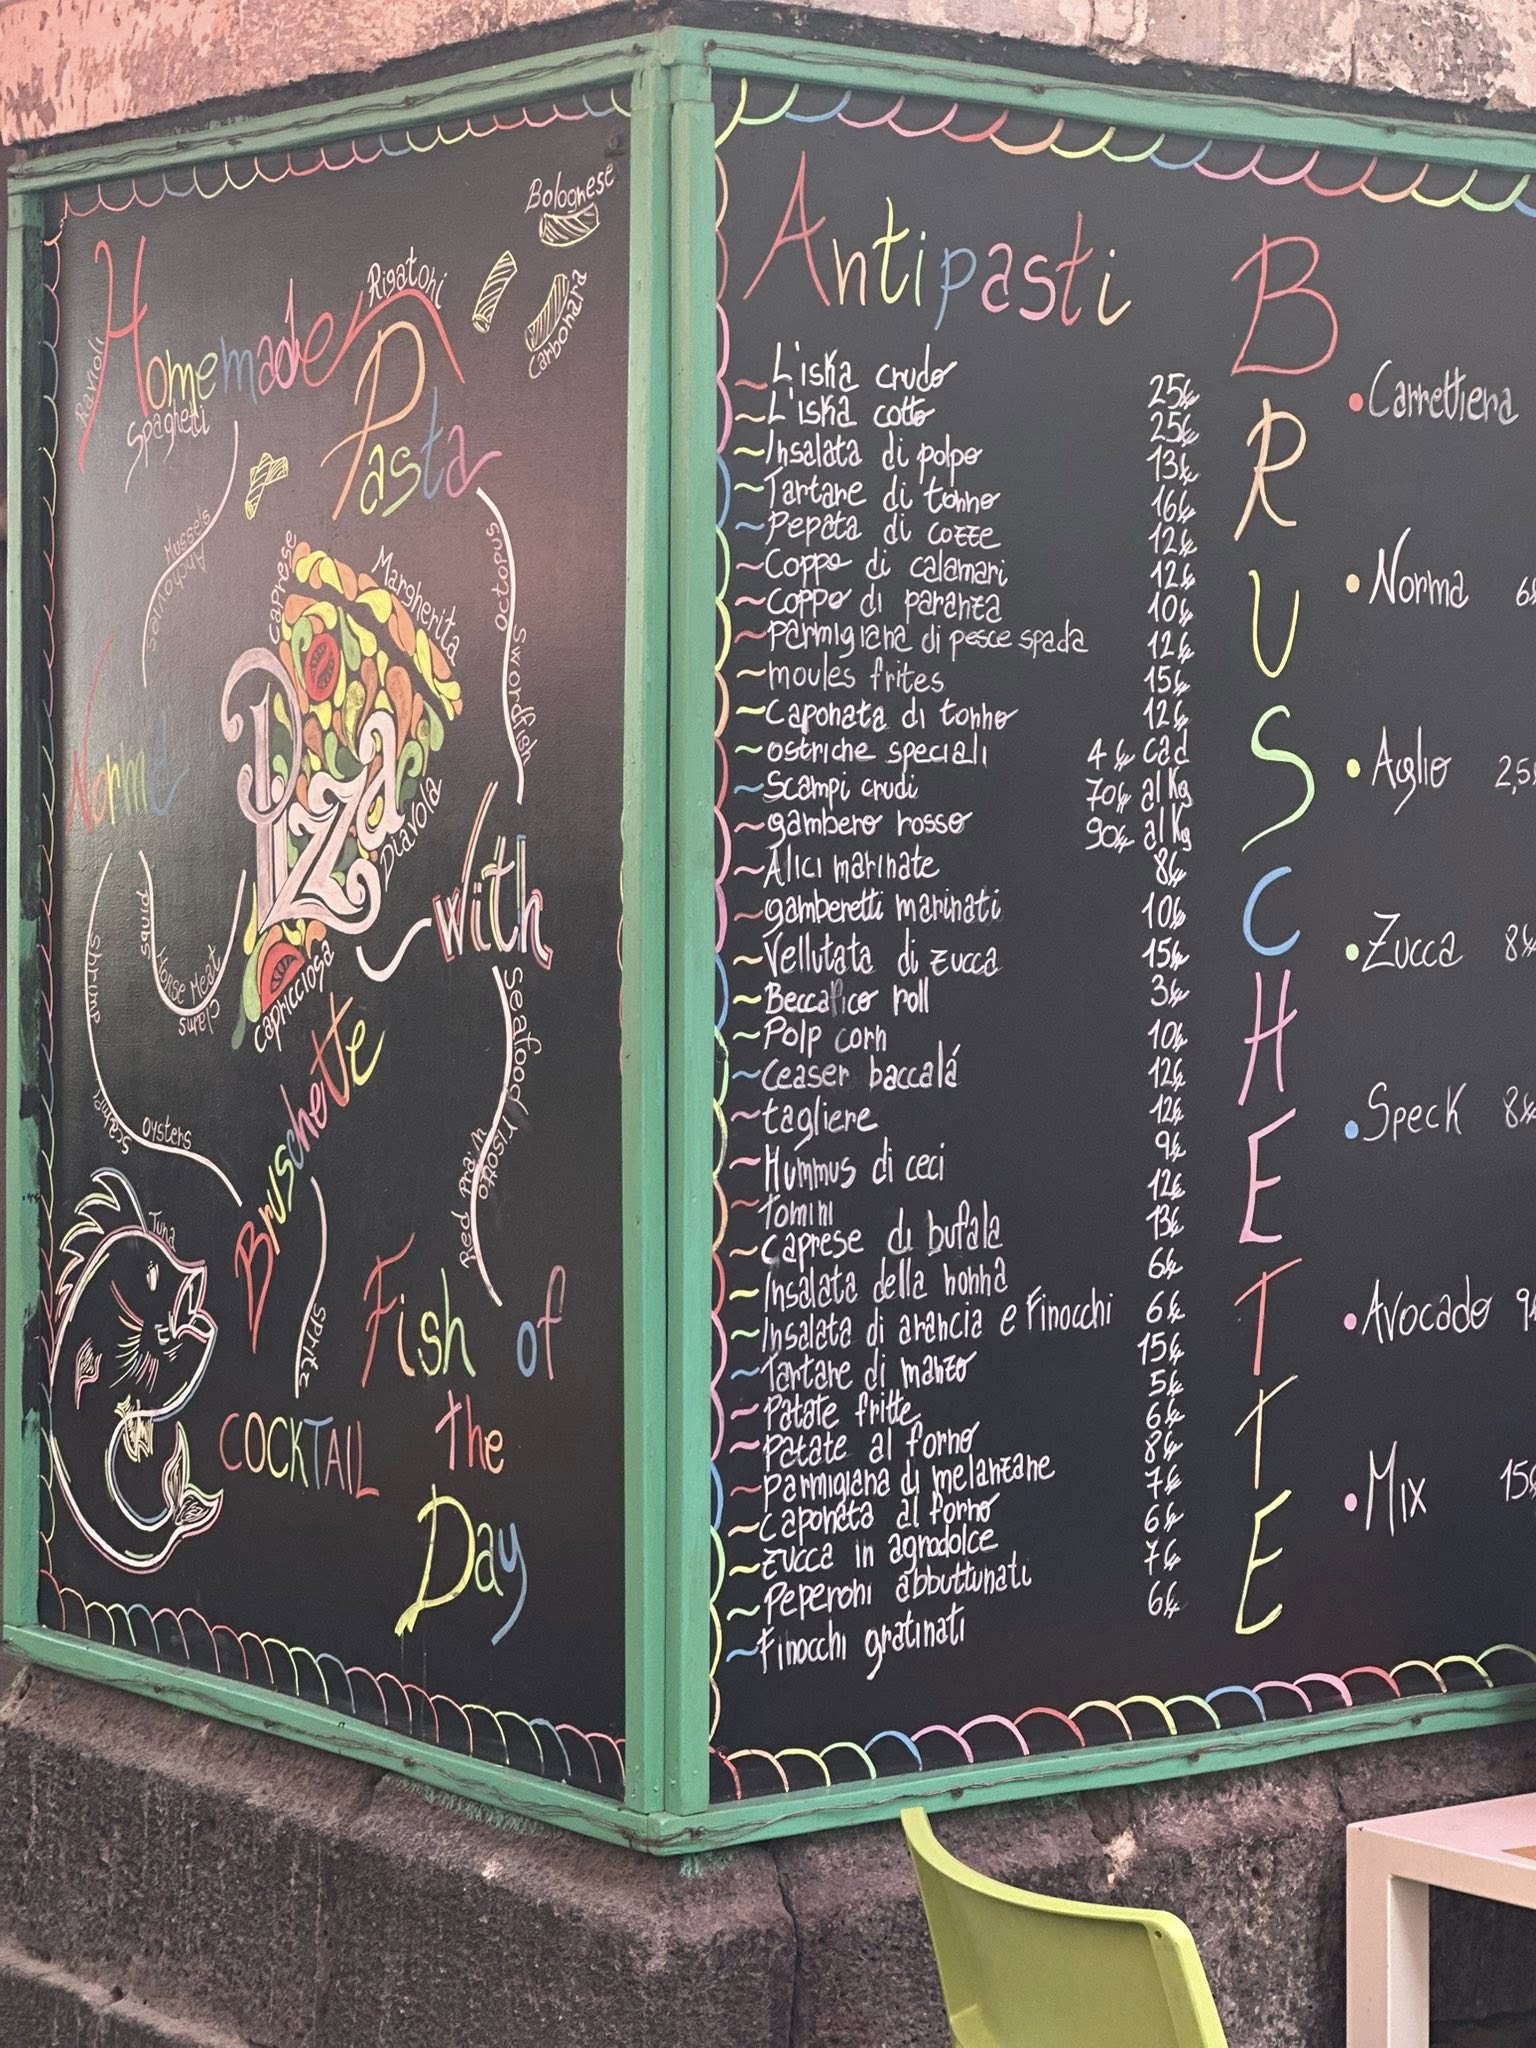 Bolognese
Carbonara
Rigatoni
Ravioli
Homemade
Spaghetti
Pasta
Mussels
Anchovies
Octopus
Swordfish
Norma
Caprese
Margherita
Pizza
Diavola
Capricciosa
With
shrimp
squid
Horse Meat
clams
scampi
Oysters
Bruschette
Seafood risotto
Red Prawn
Tuna
sprite
Fish of
the
Day
COCKTAIL
Antipasti
L'iska crudo 25€
L'iska cotto 25€
Insalata di polpo 13€
Tartare di tonno 16€
Pepata di cozze 12€
Coppo di calamari 12€
Coppo di paranza 10€
Parmigiana di pesce spada 12€
moules frites 15€
Caponata di tonno 12€
ostriche speciali 4€ cad
Scampi crudi 70€ al Kg
gambero rosso 90€ al Kg
Alici marinate 8€
gamberetti marinati 10€
Vellutata di zucca 15€
Beccafico roll 3€
Polp corn 10€
Ceaser baccalá 12€
tagliere 12€
Hummus di ceci 9€
tomini 12€
Caprese di bufala 13€
Insalata della nonna 6€
Insalata di arancia e Finocchi 6€
Tartare di manzo 15€
Patate fritte 5€
Patate al forno 6€
Parmigiana di melanzane 8€
Caponata al forno 7€
Zucca in agrodolce 6€
Peperoni abbuttunati 7€
Finocchi gratinati 6€
BRUSCHETTE
Carrettiera
Norma 6€
Aglio 2,5€
Zucca 8€
Speck 8€
Avocado 9€
Mix 15€